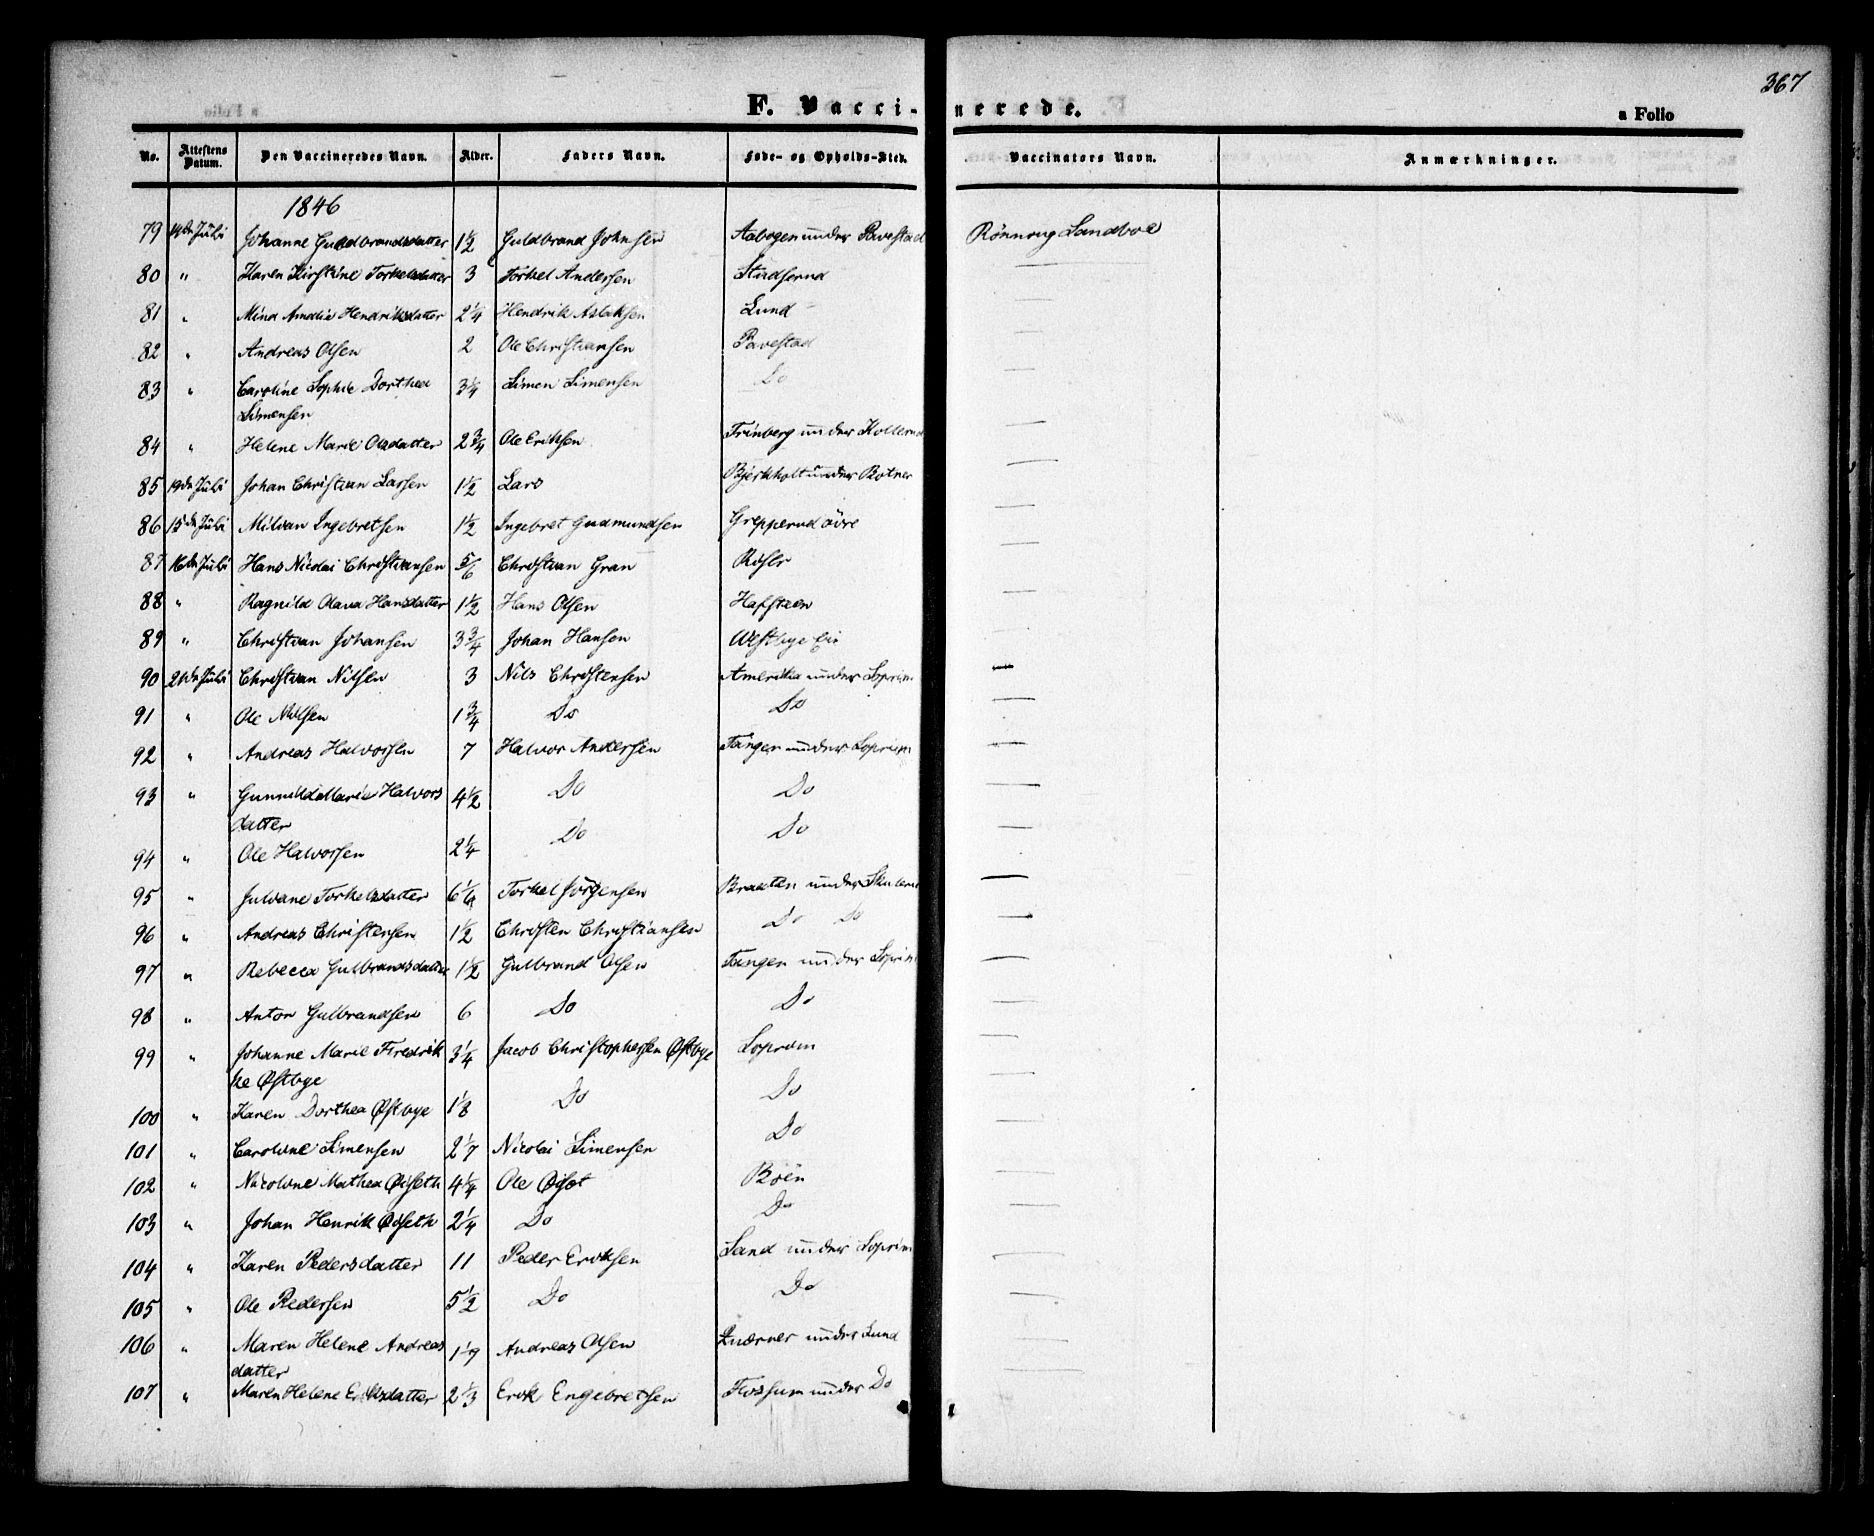 367
F. Vaccinerede.
a Folio
No. Attestens Datum. Den Vaccineredes Navn. Alder. Faders Navn. Føde- og Opholds-Sted. Vaccinators Navn. Anmærkninger.
1846
79 14de Juli Johanne Guldbrandsdatter 1½ Guldbrand Johnsen Aabogen under Pavestad Rönnoug Sandboe
80 " Karen Kirstine Torkelsdatter 3 Torkel Andersen Studserud —
81 " Mina Amalie Hendriksdatter 2¼ Hendrik Aslaksen Lund —
82 " Andreas Olsen 2 Ole Christiansen Pavestad —
83 " Caroline Sophie Dorthea 3¼ Simen Simensen Do —
Simensen
84 " Helene Marie Olsdatter 2¾ Ole Eriksen Trinberg under Kollerud —
85 14de Juli Johan Christian Larsen 1½ Lars Bjerkholt under Botner —
86 15de Juli Milvan Ingebretsen 1½ Ingebret Gudmundsen Grepperud övre —
87 16de Juli Hans Nicolai Christiansen 5/6 Christian Gran —
88 " Ragnild Olava Hansdatter 1½ Hans Olsen Hafsteen —
89 " Christian Johansen 3¾ Johan Hansen Westbye Eie —
90 21de Juli Christian Nilsen 3 Nils Christensen Amerika under Soprim —
91 " Ole Nilsen 1¾ Do Do —
92 " Andreas Halvorsen 7 Halvor Andersen Tangen under Soprim —
93 " Gunnild Marie Halvors 4½ Do Do —
datter
94 " Ole Halvorsen 2¼ Do Do —
95 " Juliane Torkelsdatter 6 1/6 Torkel Jörgensen Braaten under —
96 " Andreas Christensen 1½ Christen Christiansen Do Do —
97 " Rebecca Gulbrandsdatter 1½ Gulbrand Olsen Tangen under Soprim —
98 " Anton Gulbrandsen 6 Do Do —
99 " Johanne Marie Fredrik 3¼ Jacob Christophersen Østbye Soprim —
ke Østbye
100 " Karen Dorthea Østbye 1/8 Do Do —
101 " Caroline Simensen 2/7 Nicolai Simensen Do —
102 " Nicoline Mathea Øiseth 4¼ Ole Øiset Böen —
103 " Johan Henrik Øiseth 2¼ Do Do —
104 " Karen Pedersdatter 11 Peder Eriksen Sand under Soprim —
105 " Ole Pedersen 5½ Do Do —
106 " Maren Helene Andreas 1/9 Andreas Olsen Quærner under Lund —
datter
107 " Maren Helene Eriksdatter 2⅓ Erik Engebretsen Fossum under Do —